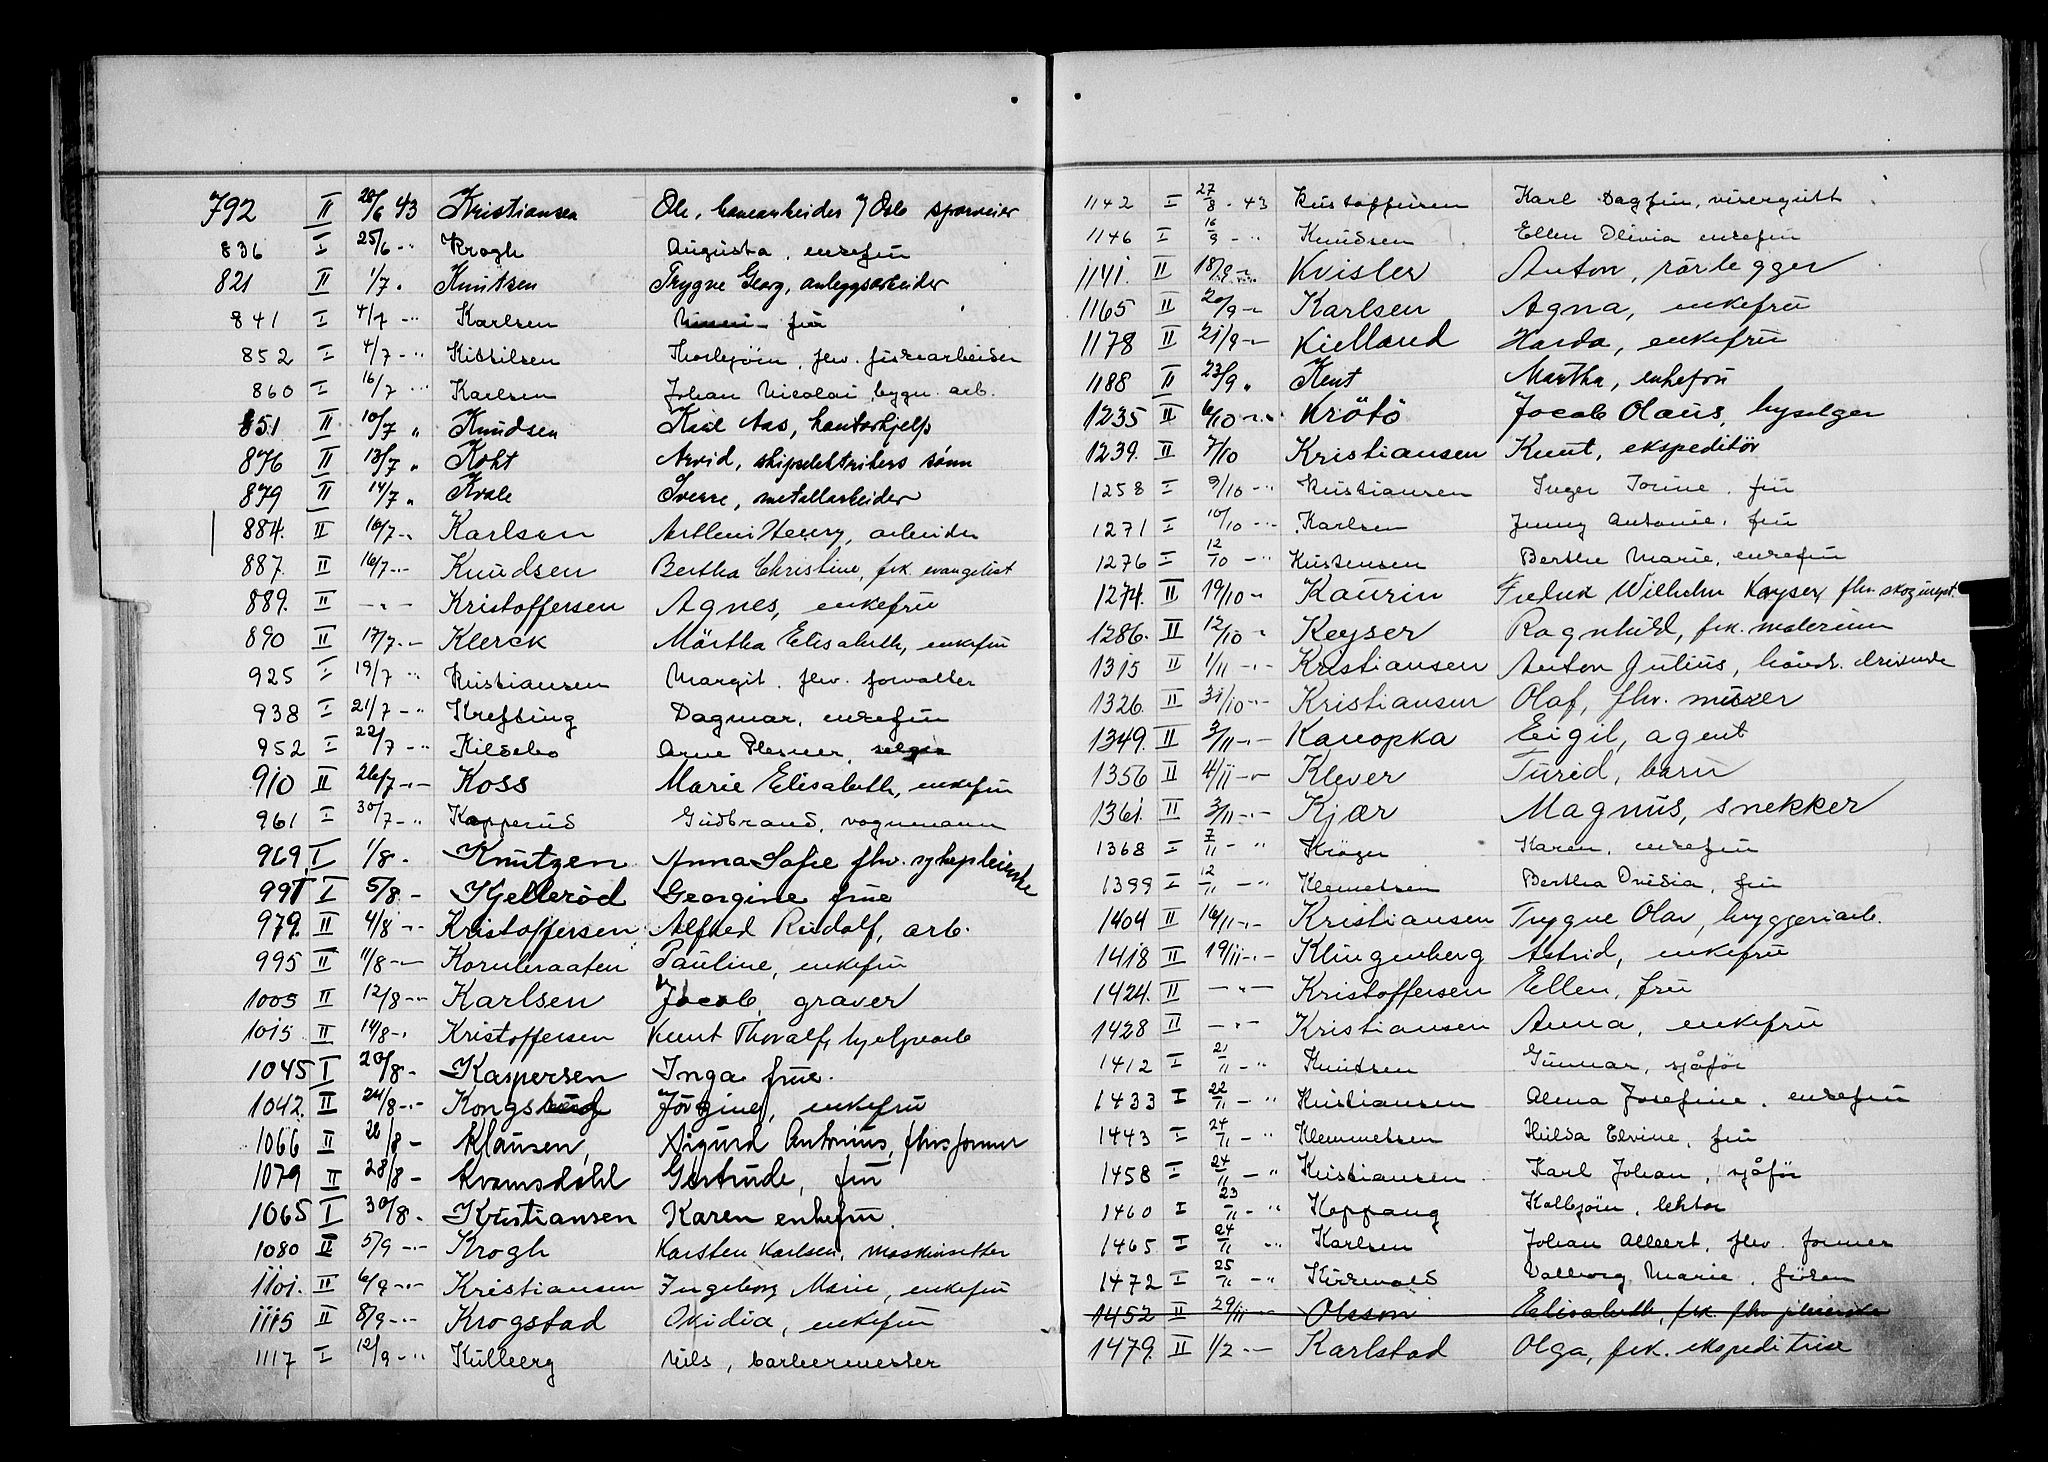 792 II 20/6 43 Kristiansen Ole, banearbeider v/ Oslo sporveier
836 I 25/6 -" Krogh Augusta, enkefru
821 II 1/7 " Knutsen Trygve Georg, anleggsarbeider
841 I 4/7 -" Karlsen fru
852 I 4/7 -" Kittilsen Thorbjörn, fhv. fiskearbeider
860 I 16/7 -" Karlsen Johan Nicolai, bygn. arb.
851 II 10/7 " Knudsen Karl Aas, kontorhjelp
876 II 13/7 " Koht Arvid, skipselektrikers sönn
879 II 14/7 " Kvale Sverre, metallarbeider
884. II 16/7 -"- Karlsen Henry, arbeider
887. II 16/7 -"- Knudsen Bertha Christine, frk. evangelist
889. II -"- Kristoffersen Agnes, enkefru
890 II 17/7 -"- Klerck Märtha Elisabeth, enkefru
925 I 19/7 -" Kristiansen Margit, fhv. forvalter
938 I 21/7 -" Krefting Dagmar, enkefru
952 I 22/7 -" Kilsebo Arne Plesner, selger
910 II 26/7 -"- Koss Marie Elisabeth, enkefru
961 I 30/7 -" Kapperud Gudbrand, vognmann
969 I 1/8 - Knutzen Anna Sofie fhv. sykepleierske
991 I 5/8 - Kjelleröd Georgine frue
979. II 4/8 -"- Kristoffersen Alfred Rudolf, arb.
995 II 11/8 -"- Kornbraaten Pauline, enkefru
1005 II 12/8 -"- Karlsen Jacob, graver
1015 II 14/8 -"- Kristoffersen Knut Thoralf, hjelpearb
1045 I 20/8 - Kaspersen Inga frue.
1042. II 24/8 -"- Kongsberg Jörgine, enkefru
1066 II 26/8 - Klausen, Sigurd Antonius, fhv. former
1079 II 28/8 - Kvamsdahl Gertrude, fru
1065 I 30/8 - Kristiansen Karen enkefru.
1080 II 5/9 -"- Krogh Karsten Karlsen, maskinsetter
1101. II 6/9 -"- Kristiansen Ingeborg Marie, enkefru
1115 II 8/9 -"- Krogstad Ovidia, enkefru
1117 I 12/9 -" Kulberg Nils, barbermester
1142 I 27/8 - 43 Kristoffersen Karl Dagfin, visergutt
1146 I 16/9 -" Knudsen Ellen Olivia enkefru
1141. II 18/9 -"- Kvisler Anton, rörlegger
1165 II 20/9 -"- Karlsen Agna, enkefru
1178 II 21/9 -"- Kielland Harda, enkefru
1188 II 23/9 " Kent Martha, enkefru
1235 II 6/10 -"- Krötö Jocab Olaus, byselger
1239. II 7/10 Kristiansen Knut, ekspeditör
1258 I 9/10 -" Kristiansen Inger Jorine, fru
1271 I 10/10 -" Karlsen Jenny Antonie, fru
1276 I 12/10 -" Kristensen Berthe Marie, enkefru
1274. II 19/10 -"- Kaurin Fredrik Wilhelm Kayser, fhv. skoginsp.
1286. II 12/10 -"- Keyser Ragnhild, frk. malerinne
1315 II 1/11 -"- Kristiansen Anton Julius, håndv. drivende
1326. II 31/10 -"- Kristiansen Olaf, fhv. murer
1349. II 3/11 -"- Kanopka Eigil, agent
1356 II 4/11 -"- Klever Turid, barn
1361. II 3/11 -"- Kjær Magnus, snekker
1368 I 7/11 -" Kröger Karen, enkefru
1399 I 12/11 -" Klemetsen Bertha Ovidia, fru
1404 II 16/11 -"- Kristiansen Trygve Olav, bryggeriarb.
1418 II 19/11 -"- Klingenberg Astrid, enkefru
1424. II -"- Kristoffersen Ellen, fru
1428 II -"- Kristiansen Anna, enkefru
1412 I 21/11 -" Knutsen Gunnar, sjåför
1433 I 22/11 -" Kristiansen Alma Josefine, enkefru
1443 I 24/11 -" Klemmetsen Hilda Elvine, fru
1458 I 24/11 -" Kristiansen Karl Johan, sjåför
1460 I 23/11 -" Koppang Kolbjörn, lektor
1465 I 24/11 -" Karlsen Johan Albert, fhv. former
1472 I 25/11 -" Kirkvold Valborg Marie, fröken
1452 II 29/11 Olsson Elisabeth, frk. fhv. pleierske
1479. II 1/2 -"- Karlstad Olga, frk. ekspeditrise